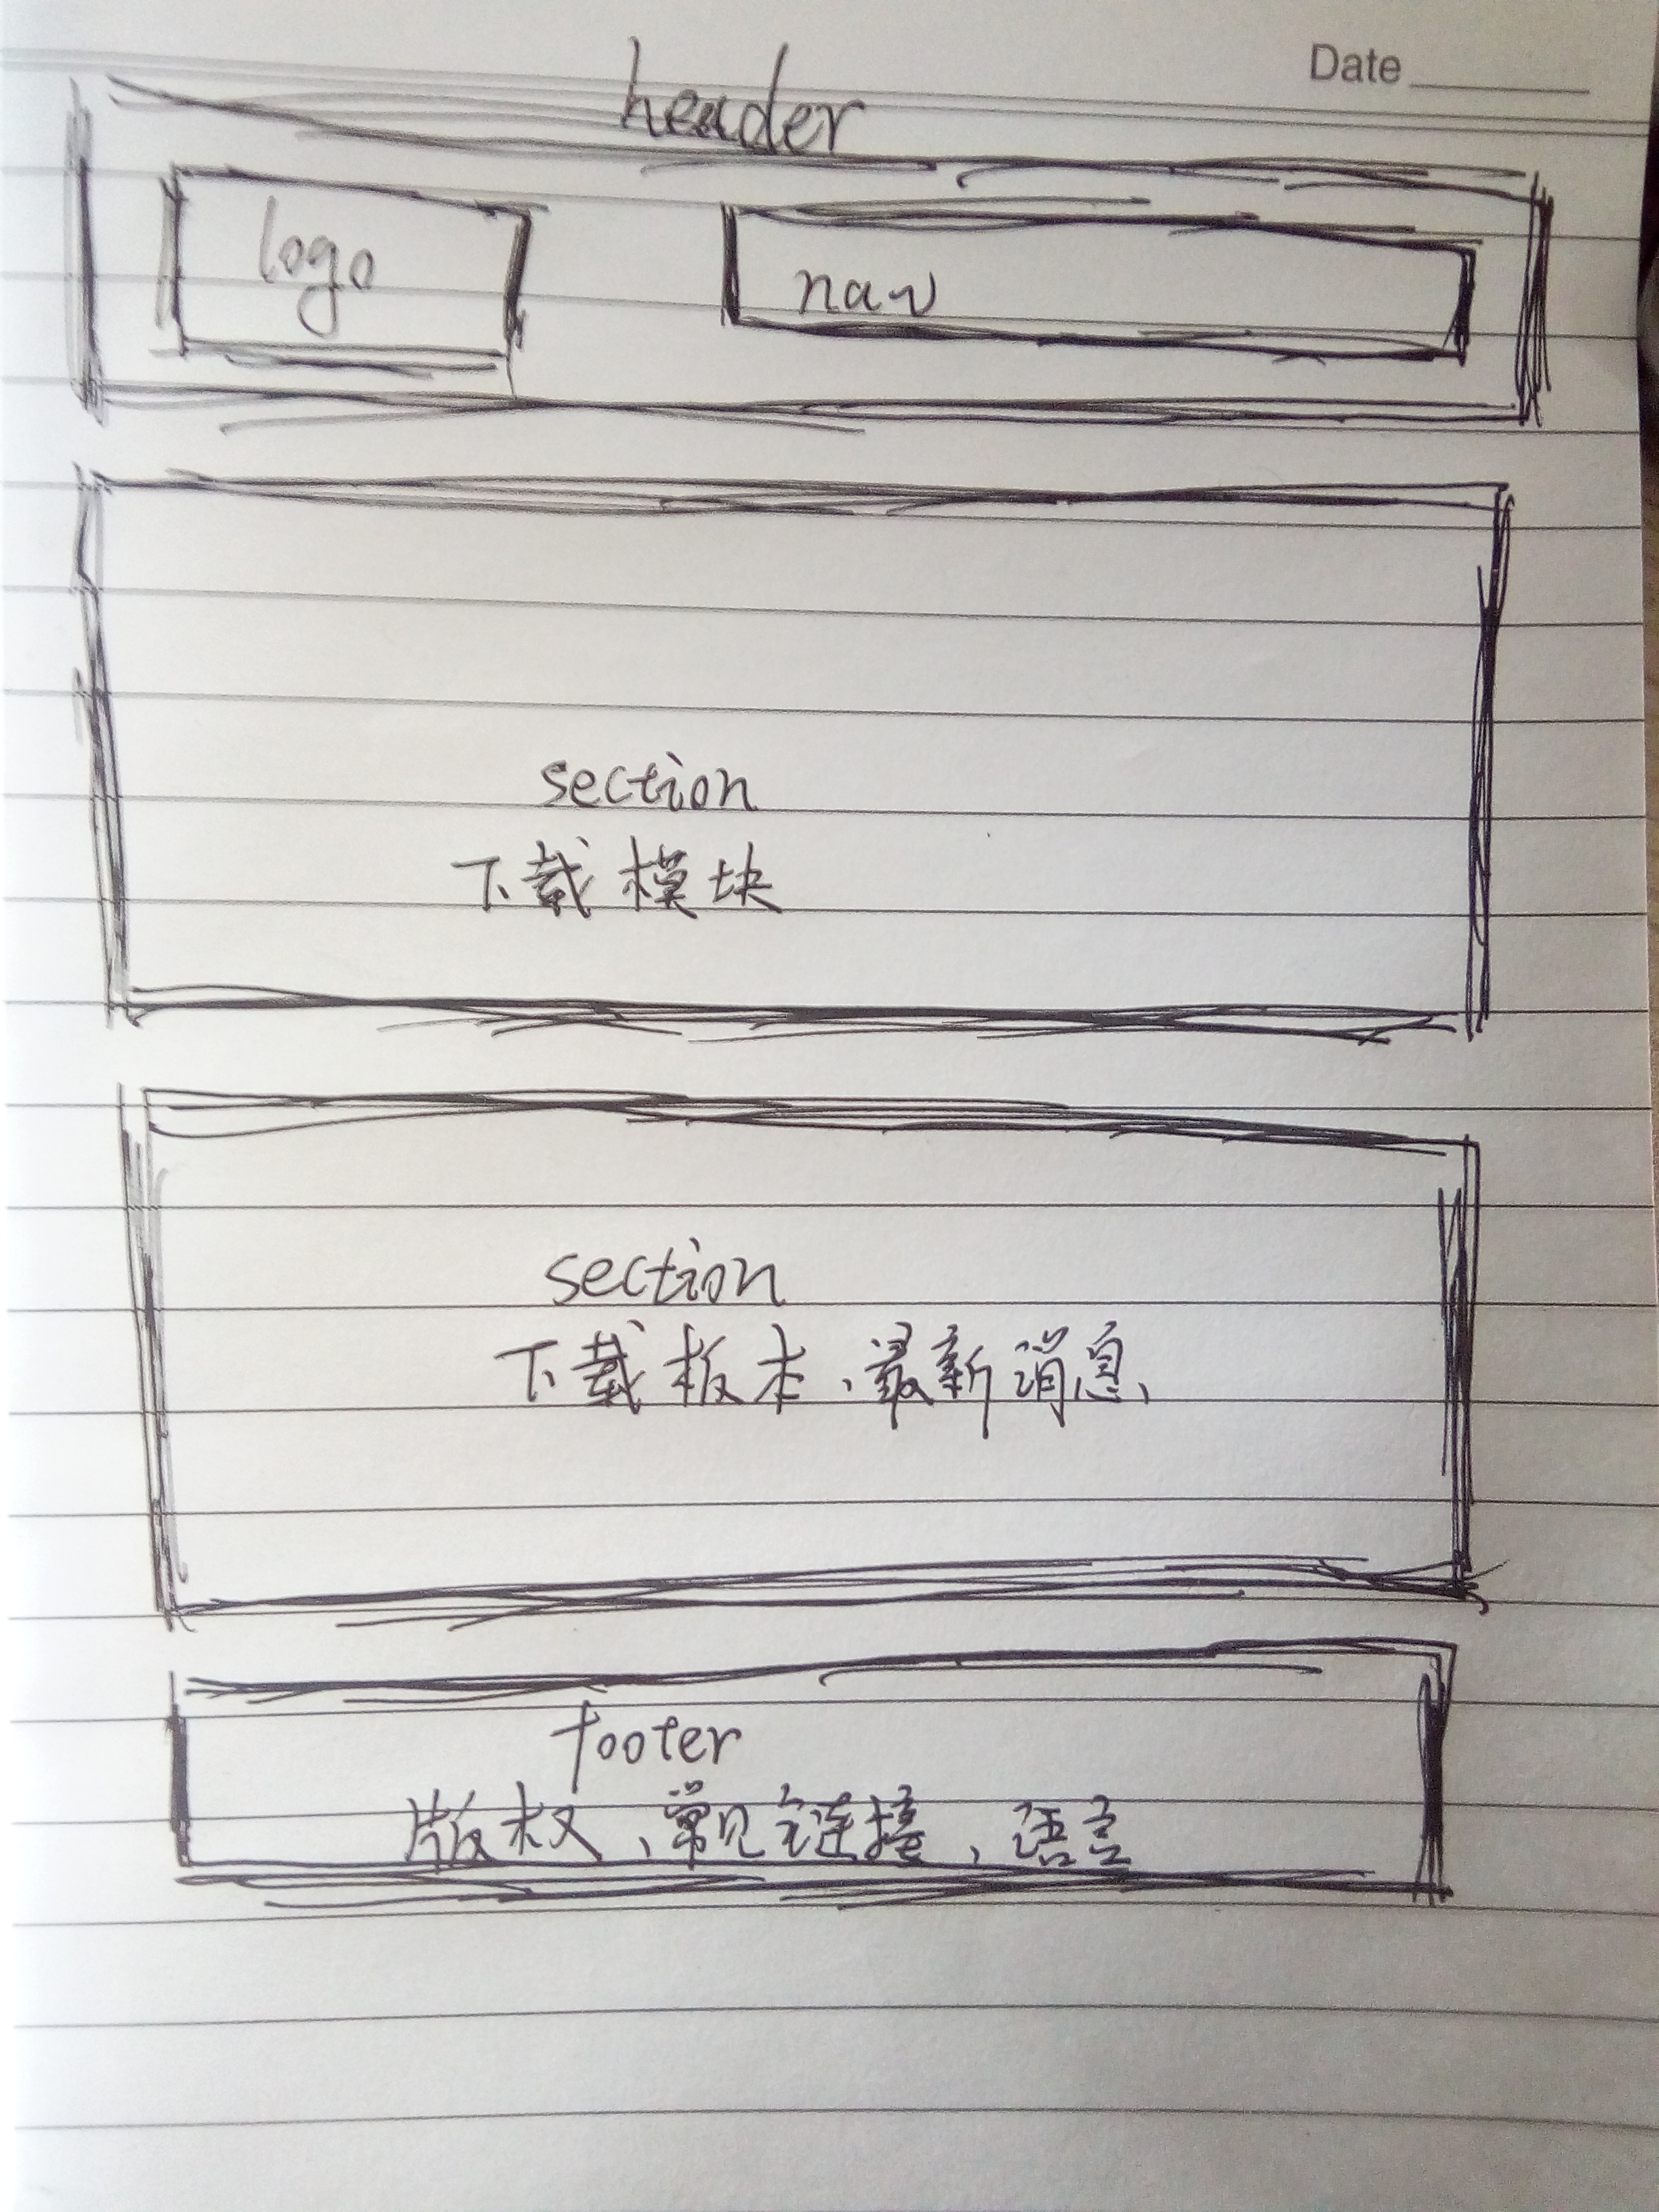 Date
header
logo
nav
section
下载模块
section
下载板本、最新消息、
footer
版权、常见链接、语言